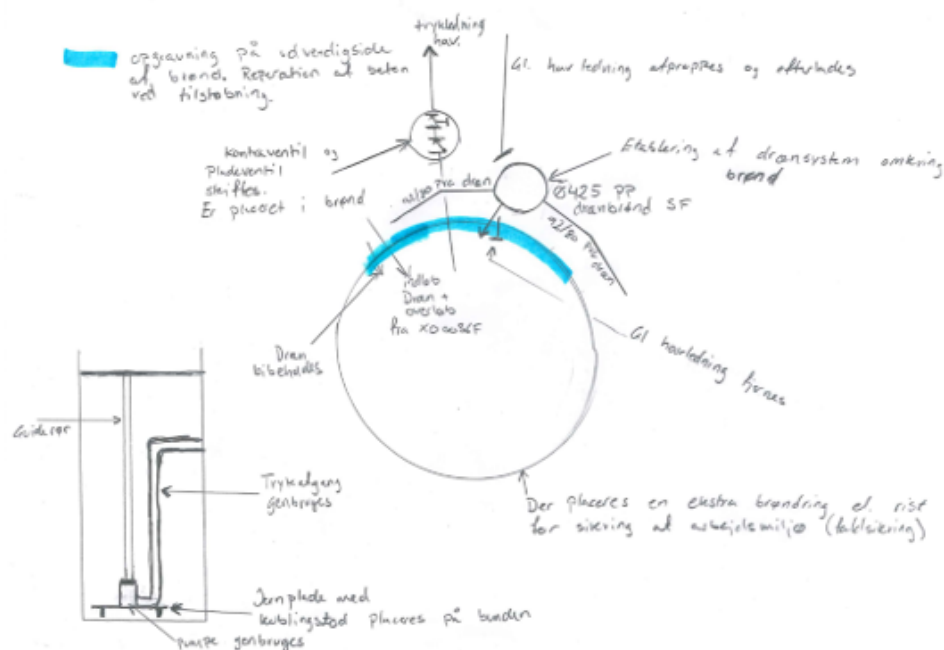 opgravning på udvendigside
af brønd. Reparation af beton
ved tilstøbning.
trykledning
hav.
Gl. havledning afproppes og efterlades
Kontraventil og
Pladeventil
skiftes.
Er placeret i brønd
92/80 pvc dræn
Etablering af drænsystem omkring
brønd
Ø425 PP
drænbrønd SF
92/80 pvc dræn
Indløb
Dræn +
overløb
fra
Dræn
bibeholdes
Gl havledning fjernes
Guiderør
Trykafgang
genbruges
Der placeres en ekstra brøndring el. rist
for sikring af arbejdsmiljø (faldsikring)
Jernplade med
koblingsfod placeres på bunden
pumpe genbruges